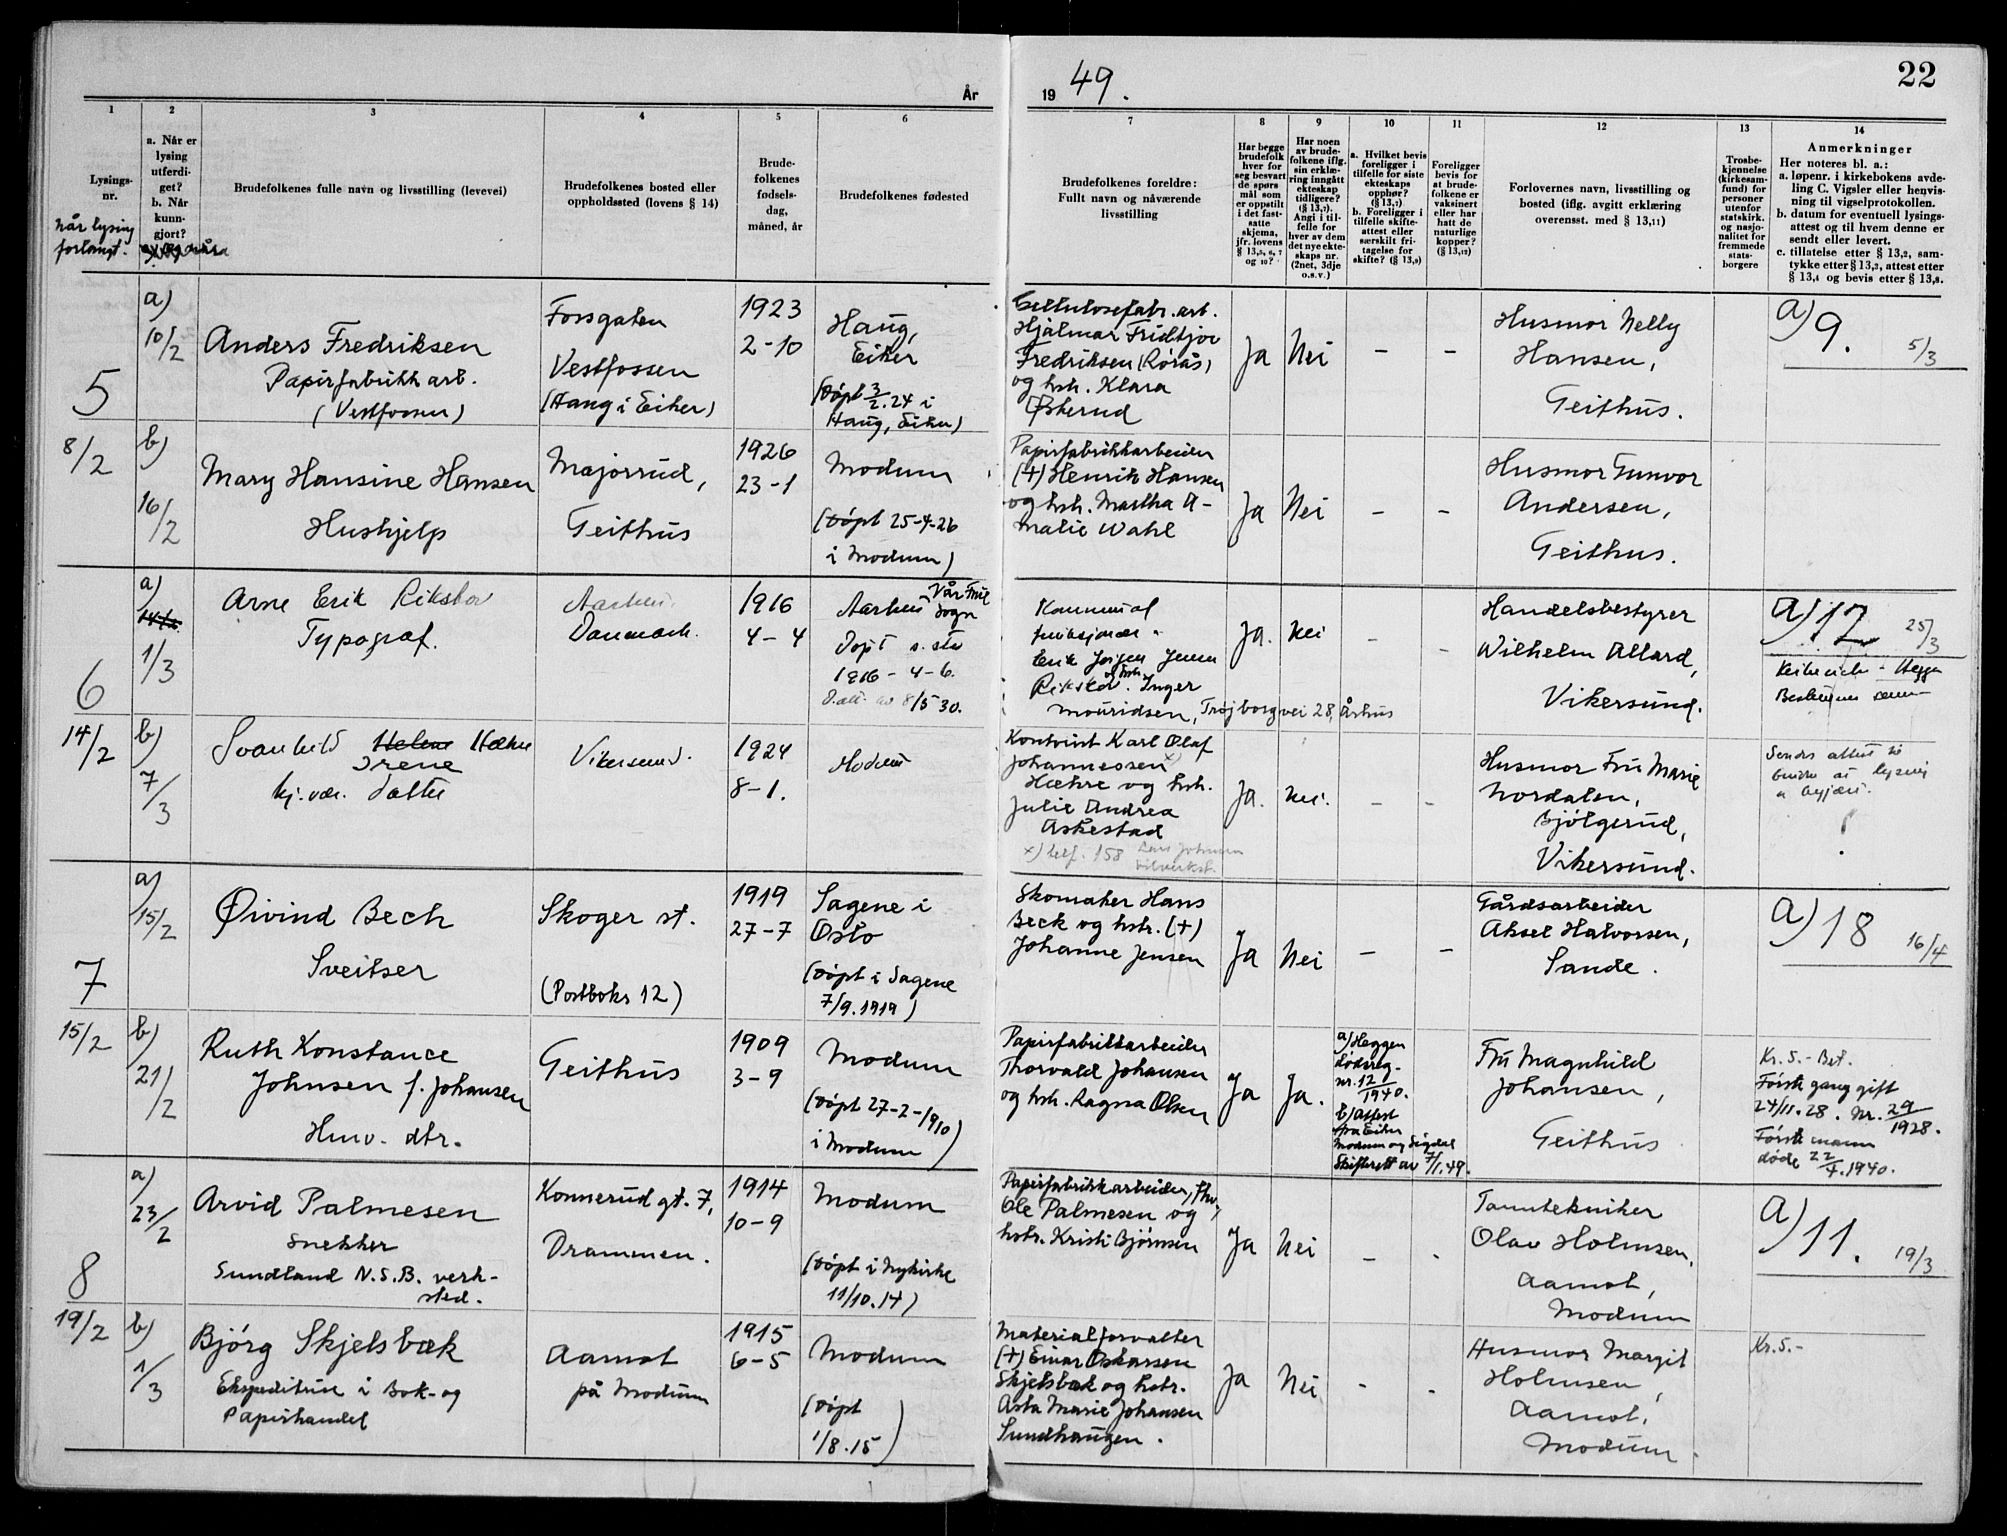 År
19 49.
22
1
2
3
4
5
6
7
8
9
10
11
12
13
14
Lysings-
nr.
Når lysing
forlangt.
a. Når er
lysing
utferdi-
get?
b. Når
kunn-
gjort?
Brudefolkenes fulle navn og livsstilling (levevei)
Brudefolkenes bosted eller
oppholdssted (lovens § 14)
Brude-
folkenes
fødsels-
dag,
måned, år
Brudefolkenes fødested
Brudefolkenes foreldre:
Fullt navn og nåværende
livsstilling
Har begge
brudefolk
hver for
seg besvart
de spørs
mål som
er oppstilt
i det fast-
satte
skjema,
jfr. lovens
§ 13,5, 6, 7
og 10?
Har noen
av brude-
folkene iflg.
sin erklæ-
ring inngått
ekteskap
tidligere?
(§ 13,7).
Angi i til-
felle for
hver av dem
det nye ekte-
skaps nr.
(2net, 3dje
o.s.v.)
a. Hvilket bevis
foreligger i
tilfelle for siste
ekteskaps
opphør?
(§ 13,7)
b. Foreligger i
tilfelle skifte-
attest eller
særskilt fri-
tagelse for
skifte? (§ 13,9)
Foreligger
bevis for
at brude-
folkene er
vaksinert
eller har
hatt de
naturlige
kopper?
(§ 13,12)
Forlovernes navn, livsstilling og
bosted (iflg. avgitt erklæring
overensst. med § 13,11)
Trosbe-
kjennelse
(kirkesam-
fund) for
personer
utenfor
statskirk.
og nasjo-
nalitet for
fremmede
stats-
borgere
Anmerkninger
Her noteres bl. a.:
a. løpenr. i kirkebokens avde-
ling C. Vigsler eller henvis-
ning til vigselprotokollen.
b. datum for eventuell lysings-
attest og til hvem denne er
sendt eller levert.
c. tillatelse etter § 13,2, sam-
tykke etter § 13,3, attest etter
§ 13,4 og bevis etter § 13,8.
5
8/2
a)
10/2
Anders Fredriksen
Papirfabrikk arb.
(Vestfossen)
Forsgaten
Vestfossen
(Haug i Eiker)
1923
2-10
Haug,
Eiker
(Døpt 3/2.24 i
Haug, Eiker)
Cellulosefabr. arb.
Hjalmar Fridtjov
Fredriksen (Rørås)
og hstr. Klara
Østerud
Ja
Nei
–
–
Husmor Nelly
Hansen,
Geithus.
a) 9. 5/3
b)
16/2
Mary Hansine Hansen
Hushjelp
Majorrud,
Geithus
1926
23-1
Modum
(Døpt 25-4-26
i Modum)
Papirfabrikkarbeider
(+) Henrik Hansen
og hstr. Martha A-
malie Wahl
Ja
Nei
–
–
Husmor Gunvor
Andersen,
Geithus.
6
14/2
a)
1/3
Arne Erik Rikskov
Typograf.
Aarhus.
Danmark.
1916
4-4
Aarhus Vår Frue
Sogn
Døpt s. std
1916-4-6.
8/5 30.
Kommunal
funksjonær
Erik Jørgen Jensen
Rikskov. og hstr. Inger
Mouridsen, Trøjborgvei 28, Århus
Ja.
Nei
–
–
Handelsbestyrer
Wilhelm Allard,
Vikersund.
a) 12 25/3
Heggen
b)
7/3
Svanhild Helene Hæhre
Irene
hj. vær. datter
Vikersund.
1924
8-1.
Modum
Kontrist Karl Olaf
Johannessen x)
Hæhre og hstr.
Julie Andrea
Askestad
x) telf. 158
Ja.
Nei.
–
–
Husmor Fru Marie
Nordalen,
Bjølgerud,
Vikersund.
7
15/2
a)
15/2
Øivind Bech
Sveitser
Skoger st.
(Postboks 12)
1919
27-7
Sagene i
Oslo
(Døpt i Sagene
7/9.1919)
Skomaker Hans
Beck og hstr. (+)
Johanne Jensen
Ja
Nei
–
–
Gårdsarbeider
Aksel Halvorsen,
Sande.
a) 18 16/4
b)
21/2
Ruth Konstance
Johnsen f. Johansen
Husv. dtr.
Geithus
1909
3-9
Modum
(Døpt 27-2-1910)
i Modum
Papirfabrikkarbeider
Thorvald Johansen
og hstr. Ragna Olsen
Ja
Ja.
a) Heggen
Dødsreg.
nr. 12/1940.
b) Attest
fra Eiker
Modum og Sigdal
Skifterett av 7/1.49.
Fru Magnhild
Johansen,
Geithus
Kr. S. - Bet.
Første gang gift
24/11.28. Nr. 29/1928.
Første mann
døde 22/4.1940.
8
19/2
a)
23/2
Arvid Palmesen
Snekker
Sundland N.S.B. verk-
sted.
Konnerud gt. 7,
Drammen.
1914
10-9
Modum
(Døpt i Nykirke
11/10.14)
Papirfabrikkarbeider, fhv.
Ole Palmesen og
hstr. Kristi Bjørnsen
Ja
Nei
–
-
Tanntekniker
Olav Holmsen,
Aamot,
Modum
a) 11. 19/3
b)
1/3
Bjørg Skjelsbæk
Ekspeditrise i Bok- og
Papirhandel
Aamot
på Modum
1915
6-5
Modum
(Døpt
1/8.15)
Materialforvalter
(+) Einar Oskarsen
Skjelsbæk og hstr.
Asta Marie Johansen
Sundhaugen.
Ja
Nei
-
-
Husmor Margit
Holmsen,
Aamot,
Modum
Kr. S.-